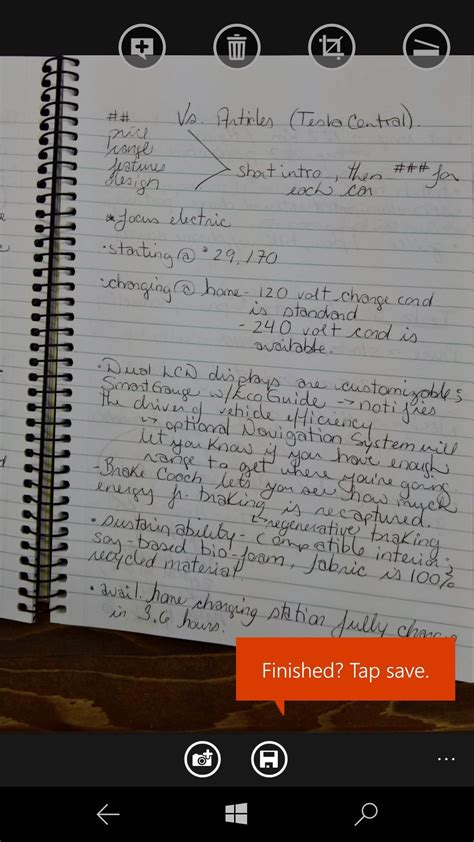 Vs. Articles (Tesla Central).
##
price
range
features
design
short intro, then ### for
each car
*focus electric
· starting @ $29,170
· charging @ home - 120 volt charge cord
is standard
- 240 volt cord is
available.
· Dual LCD displays are customizable;
SmartGauge w/EcoGuide → notifies
the driver of vehicle efficiency
↳ optional Navigation System will
let you know if you have enough
range to get where you're going
- Brake Coach lets you see how much
energy fr. braking is recaptured.
↳ regenerative braking
· sustainability - compatible interior;
soy-based bio-foam, fabric is 100%
recycled material
· avail. home charging station fully charges
in 3.6 hours.
Finished? Tap save.